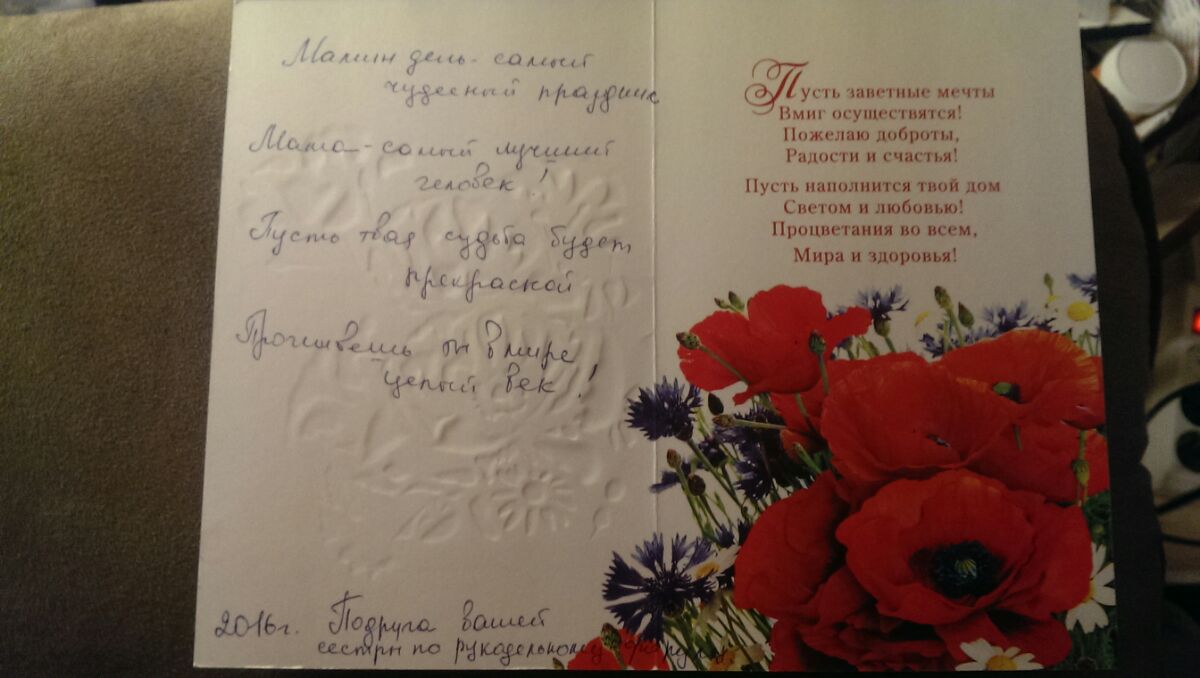 Мамин день - самый
чудесный праздник
Мама - самый лучший
человек!
Пусть твоя судьба будет
прекраской
Проживешь ты в мире
целый век!
2016 г. Подруга вашей
сестры по рукодельному
Пусть заветные мечты
Вмиг осуществятся!
Пожелаю доброты,
Радости и счастья!
Пусть наполнится твой дом
Светом и любовью!
Процветания во всем,
Мира и здоровья!